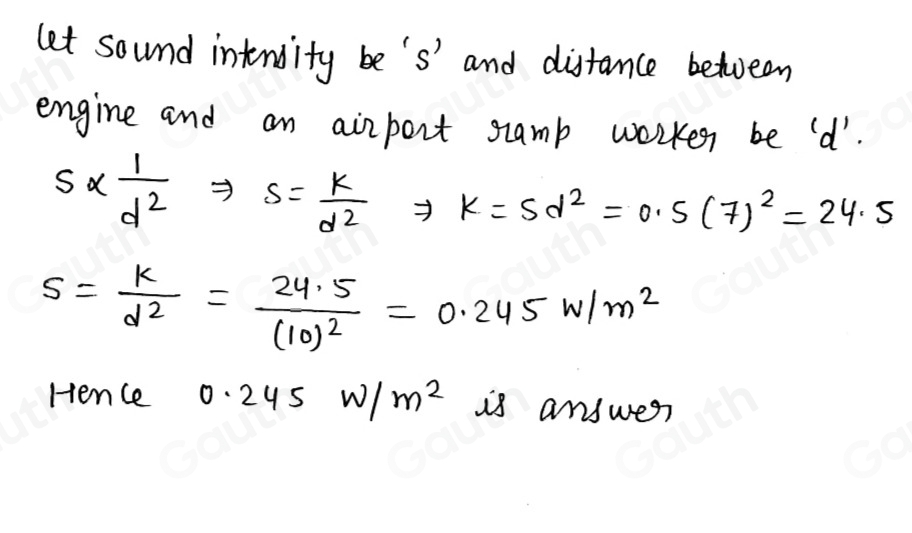 let sound intensity be 's' and distance between
engine and an airport ramp worker be 'd'.
S ∝ 1/d² ⇒ S = K/d² ⇒ K = Sd² = 0.5 (7)² = 24.5
S = K/d² = 24.5/(10)² = 0.245 W/m²
Hence 0.245 W/m² is answer